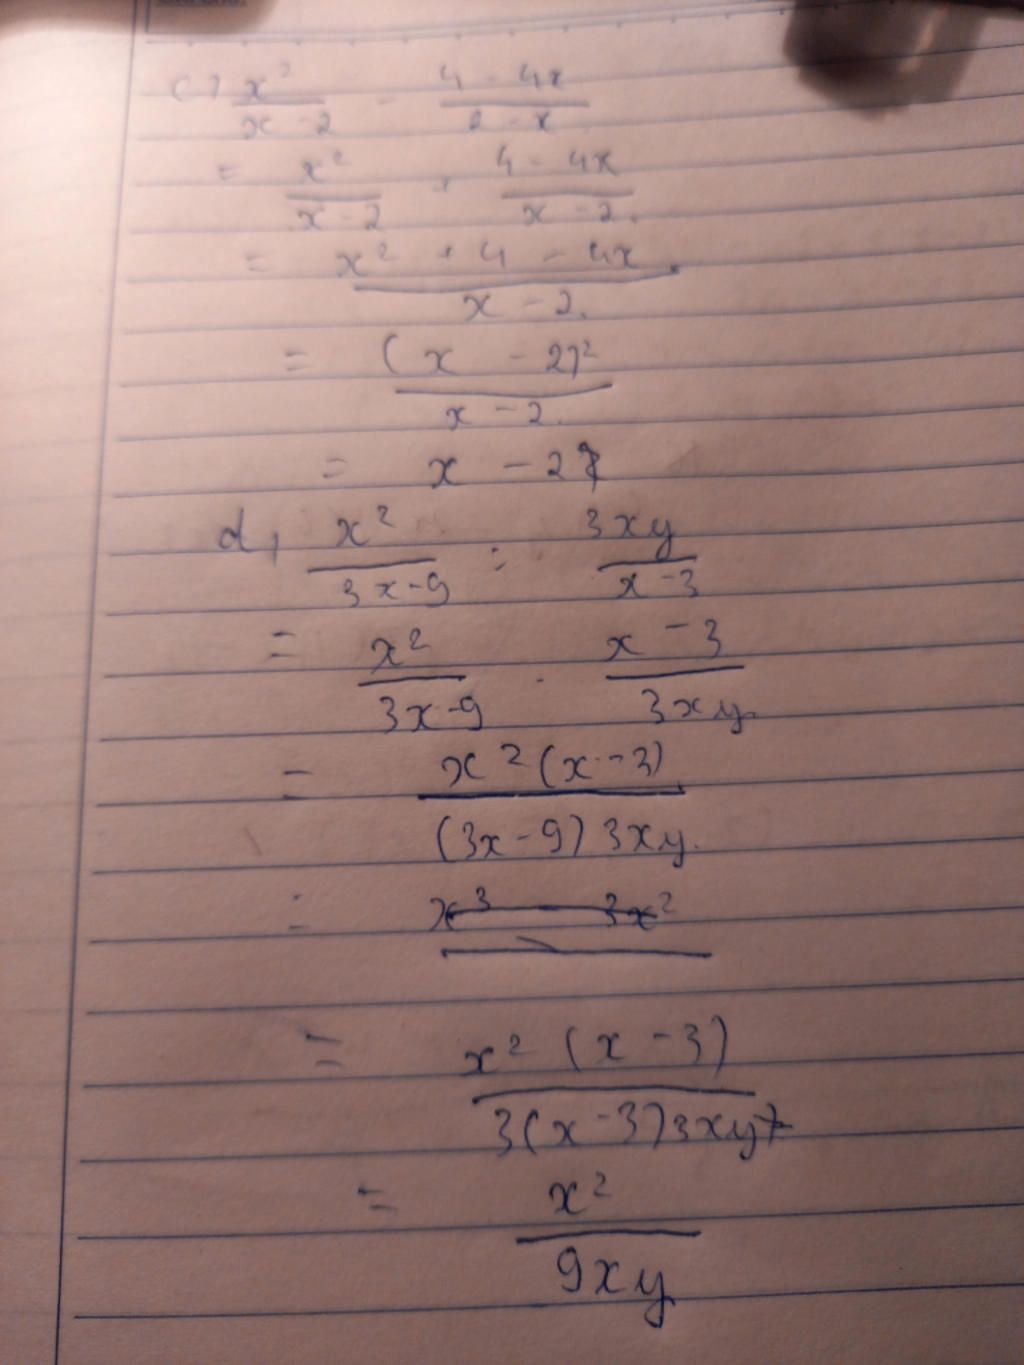 c) x²/(x - 2) - (4 - 4x)/(2 - x)
= x²/(x - 2) + (4 - 4x)/(x - 2).
= (x² + 4 - 4x)/(x - 2).
= (x - 2)²/(x - 2).
= x - 2
d, x²/(3x-9) : 3xy/(x-3)
= x²/(3x-9) . (x - 3)/(3xy)
= x²(x-3)/((3x-9) 3xy).
= x³ - 3x²
= x² (x - 3)/(3(x-3)3xy)
= x²/(9xy)